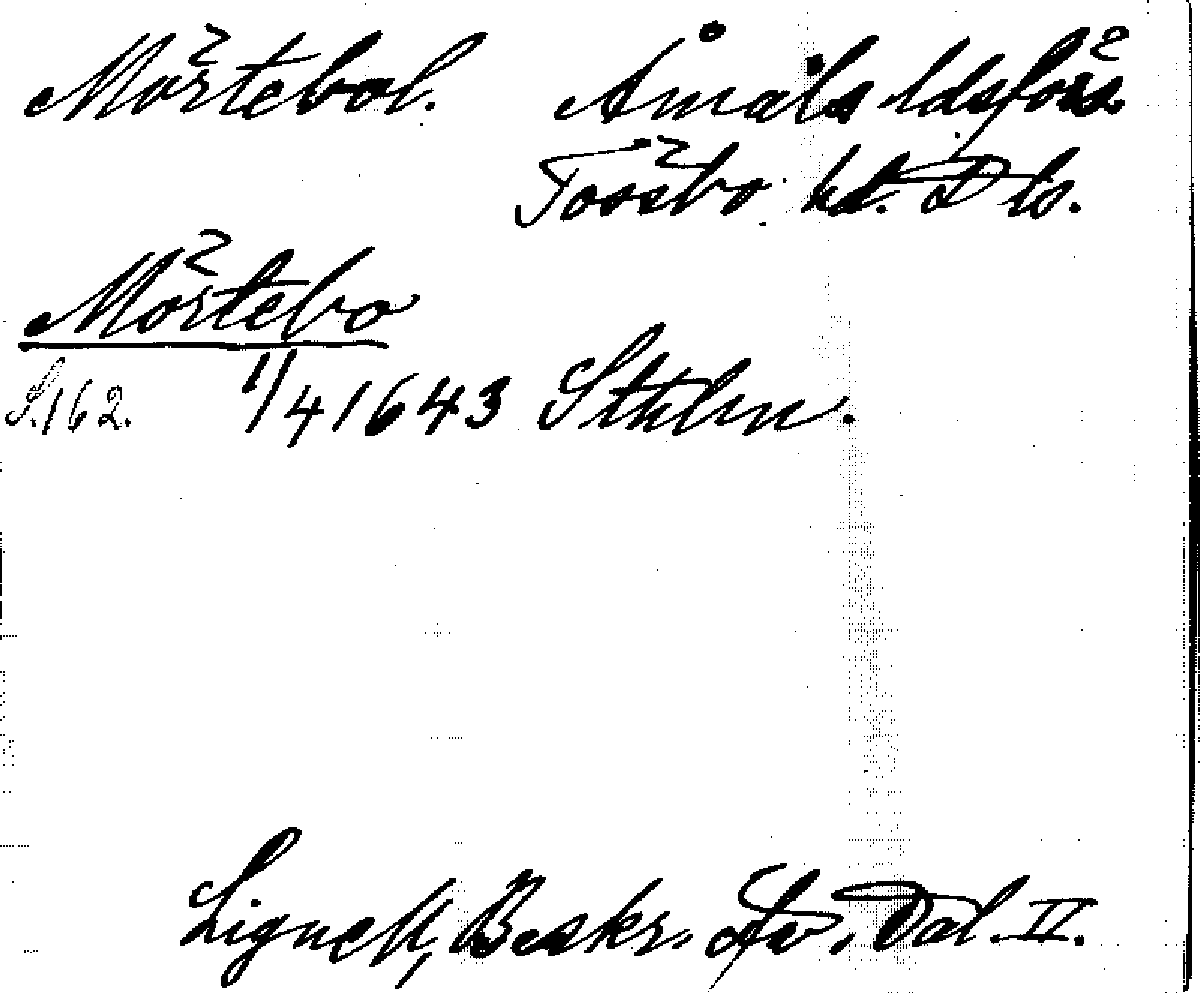 Mörtebol. Åmåls ldsförs.
Tössbo hd. Dls.
Mörtebo
S. 162. 1/4 1643 Sthlm.
Lignell, Beskr. öv. Dal. II.